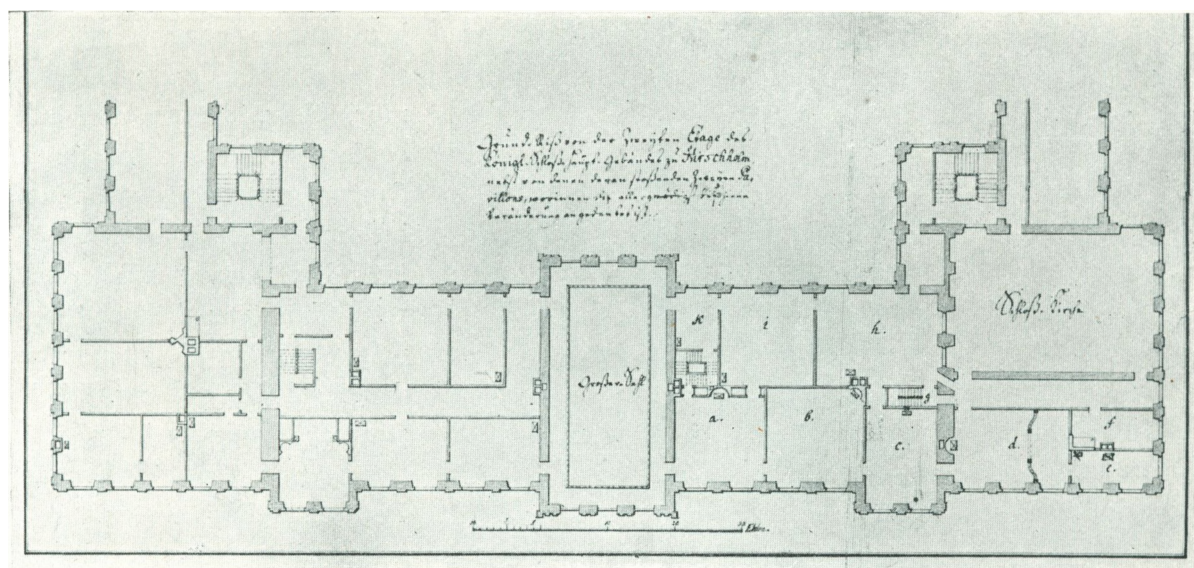 Grund-Riß von der Zweyten Etage des
Königl. Schloß-Haupt-Gebäudes zu Hirschholm
nebst von denen daran stoßenden Zweyen Pa-
villons, worinnen die allergnädigst
Veränderung angedeutet ist.
Schloß-Kirche
K
i
h.
Großer Sahl
a.
b.
c.
g
d.
f
e.